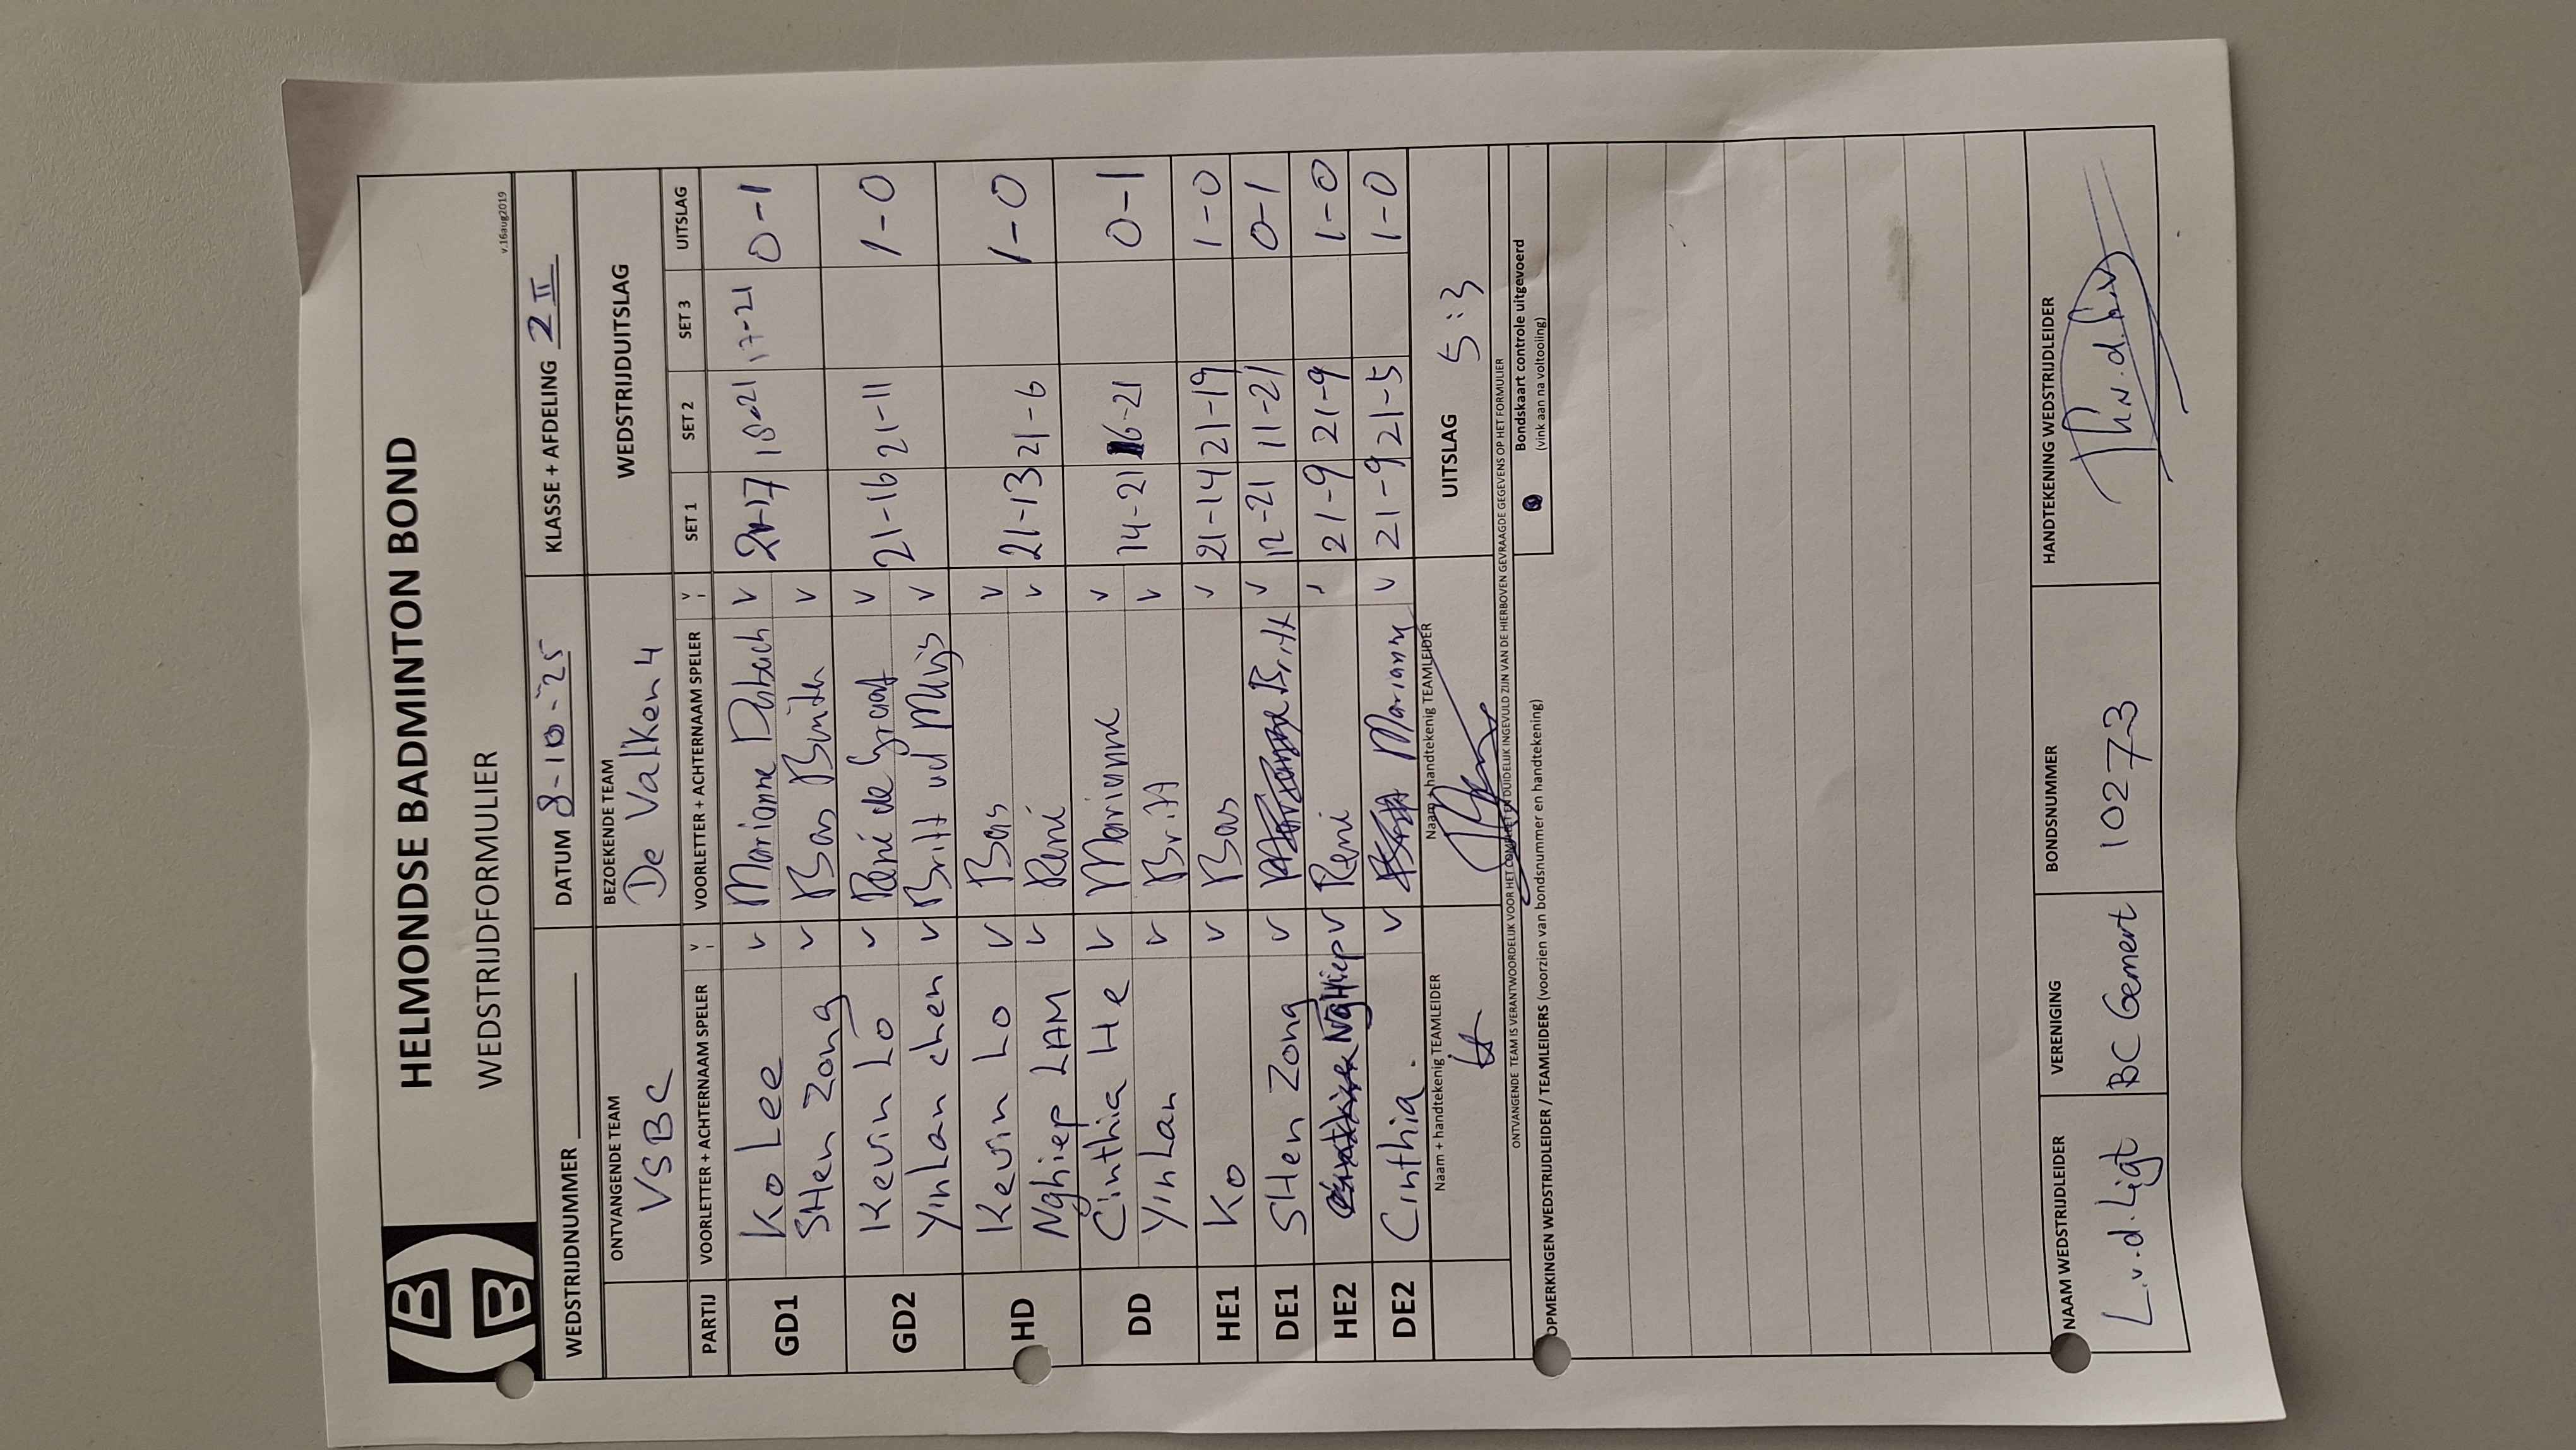 HELMONDSE BADMINTON BOND
WEDSTRIJDFORMULIER
v.16aug2019
WEDSTRIJDNUMMER DATUM 8-10-'25 KLASSE + AFDELING 2 II
ONTVANGENDE TEAM BEZOEKENDE TEAM WEDSTRIJDUITSLAG
VSBC De Valken 4
PARTIJ VOORLETTER + ACHTERNAAM SPELER V VOORLETTER + ACHTERNAAM SPELER V SET 1 SET 2 SET 3 UITSLAG
GD1 Ko Lee v Marianne v 21-17 18-21 17-21 0-1
SHen Zong v Bas v
GD2 Kevin Lo v René de Graaf v 21-16 21-11 1-0
YinLan chen v Britt vd v
HD Kevin Lo v Bas v 21-13 21-6 1-0
Nghiep LAM v René v
DD Cinthia He v Marianne v 14-21 16-21 0-1
YinLan v Britt v
HE1 Ko v Bas v 21-14 21-19 1-0
DE1 SHen Zong v Britt v 12-21 11-21 0-1
HE2 NgHiep v René v 21-9 21-9 1-0
DE2 Cinthia. v Mariann v 21-9 21-5 1-0
Naam + handtekenig TEAMLEIDER Naam + handtekenig TEAMLEIDER UITSLAG 5:3
ONTVANGENDE TEAM IS VERANTWOORDELIJK VOOR HET COMPLEET EN DUIDELIJK INGEVULD ZIJN VAN DE HIERBOVEN GEVRAAGDE GEGEVENS OP HET FORMULIER
OPMERKINGEN WEDSTRIJDLEIDER / TEAMLEIDERS (voorzien van bondsnummer en handtekening)
Bondskaart controle uitgevoerd
(vink aan na voltooiing)
NAAM WEDSTRIJDLEIDER VERENIGING BONDSNUMMER HANDTEKENING WEDSTRIJDLEIDER
L.v.d.Ligt BC Gemert 10273